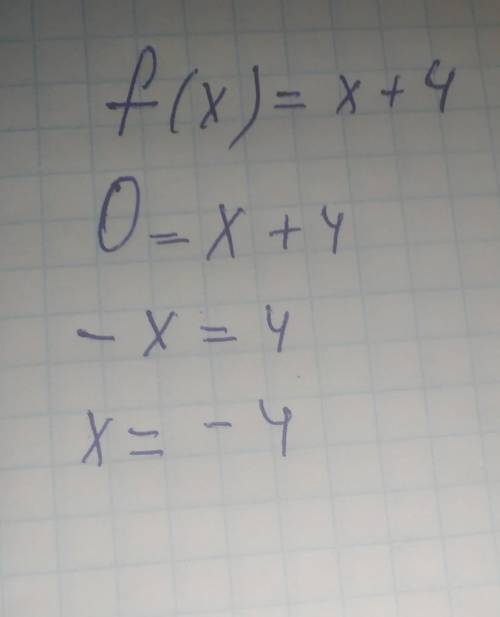 f(x) = x + 4
0 = x + 4
- x = 4
x = - 4